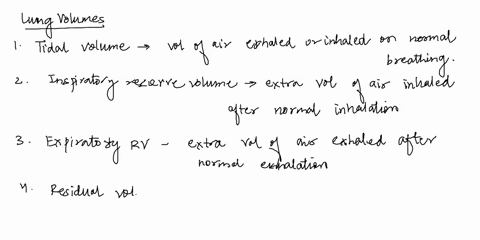 Lung Volumes
1. Tidal volume → vol of air exhaled or inhaled on normal
breathing.
2. Inspiratory reserve volume → extra vol of air inhaled
after normal inhalation
3. Expiratory RV - extra vol of air exhaled after
normal exhalation
4. Residual vol.